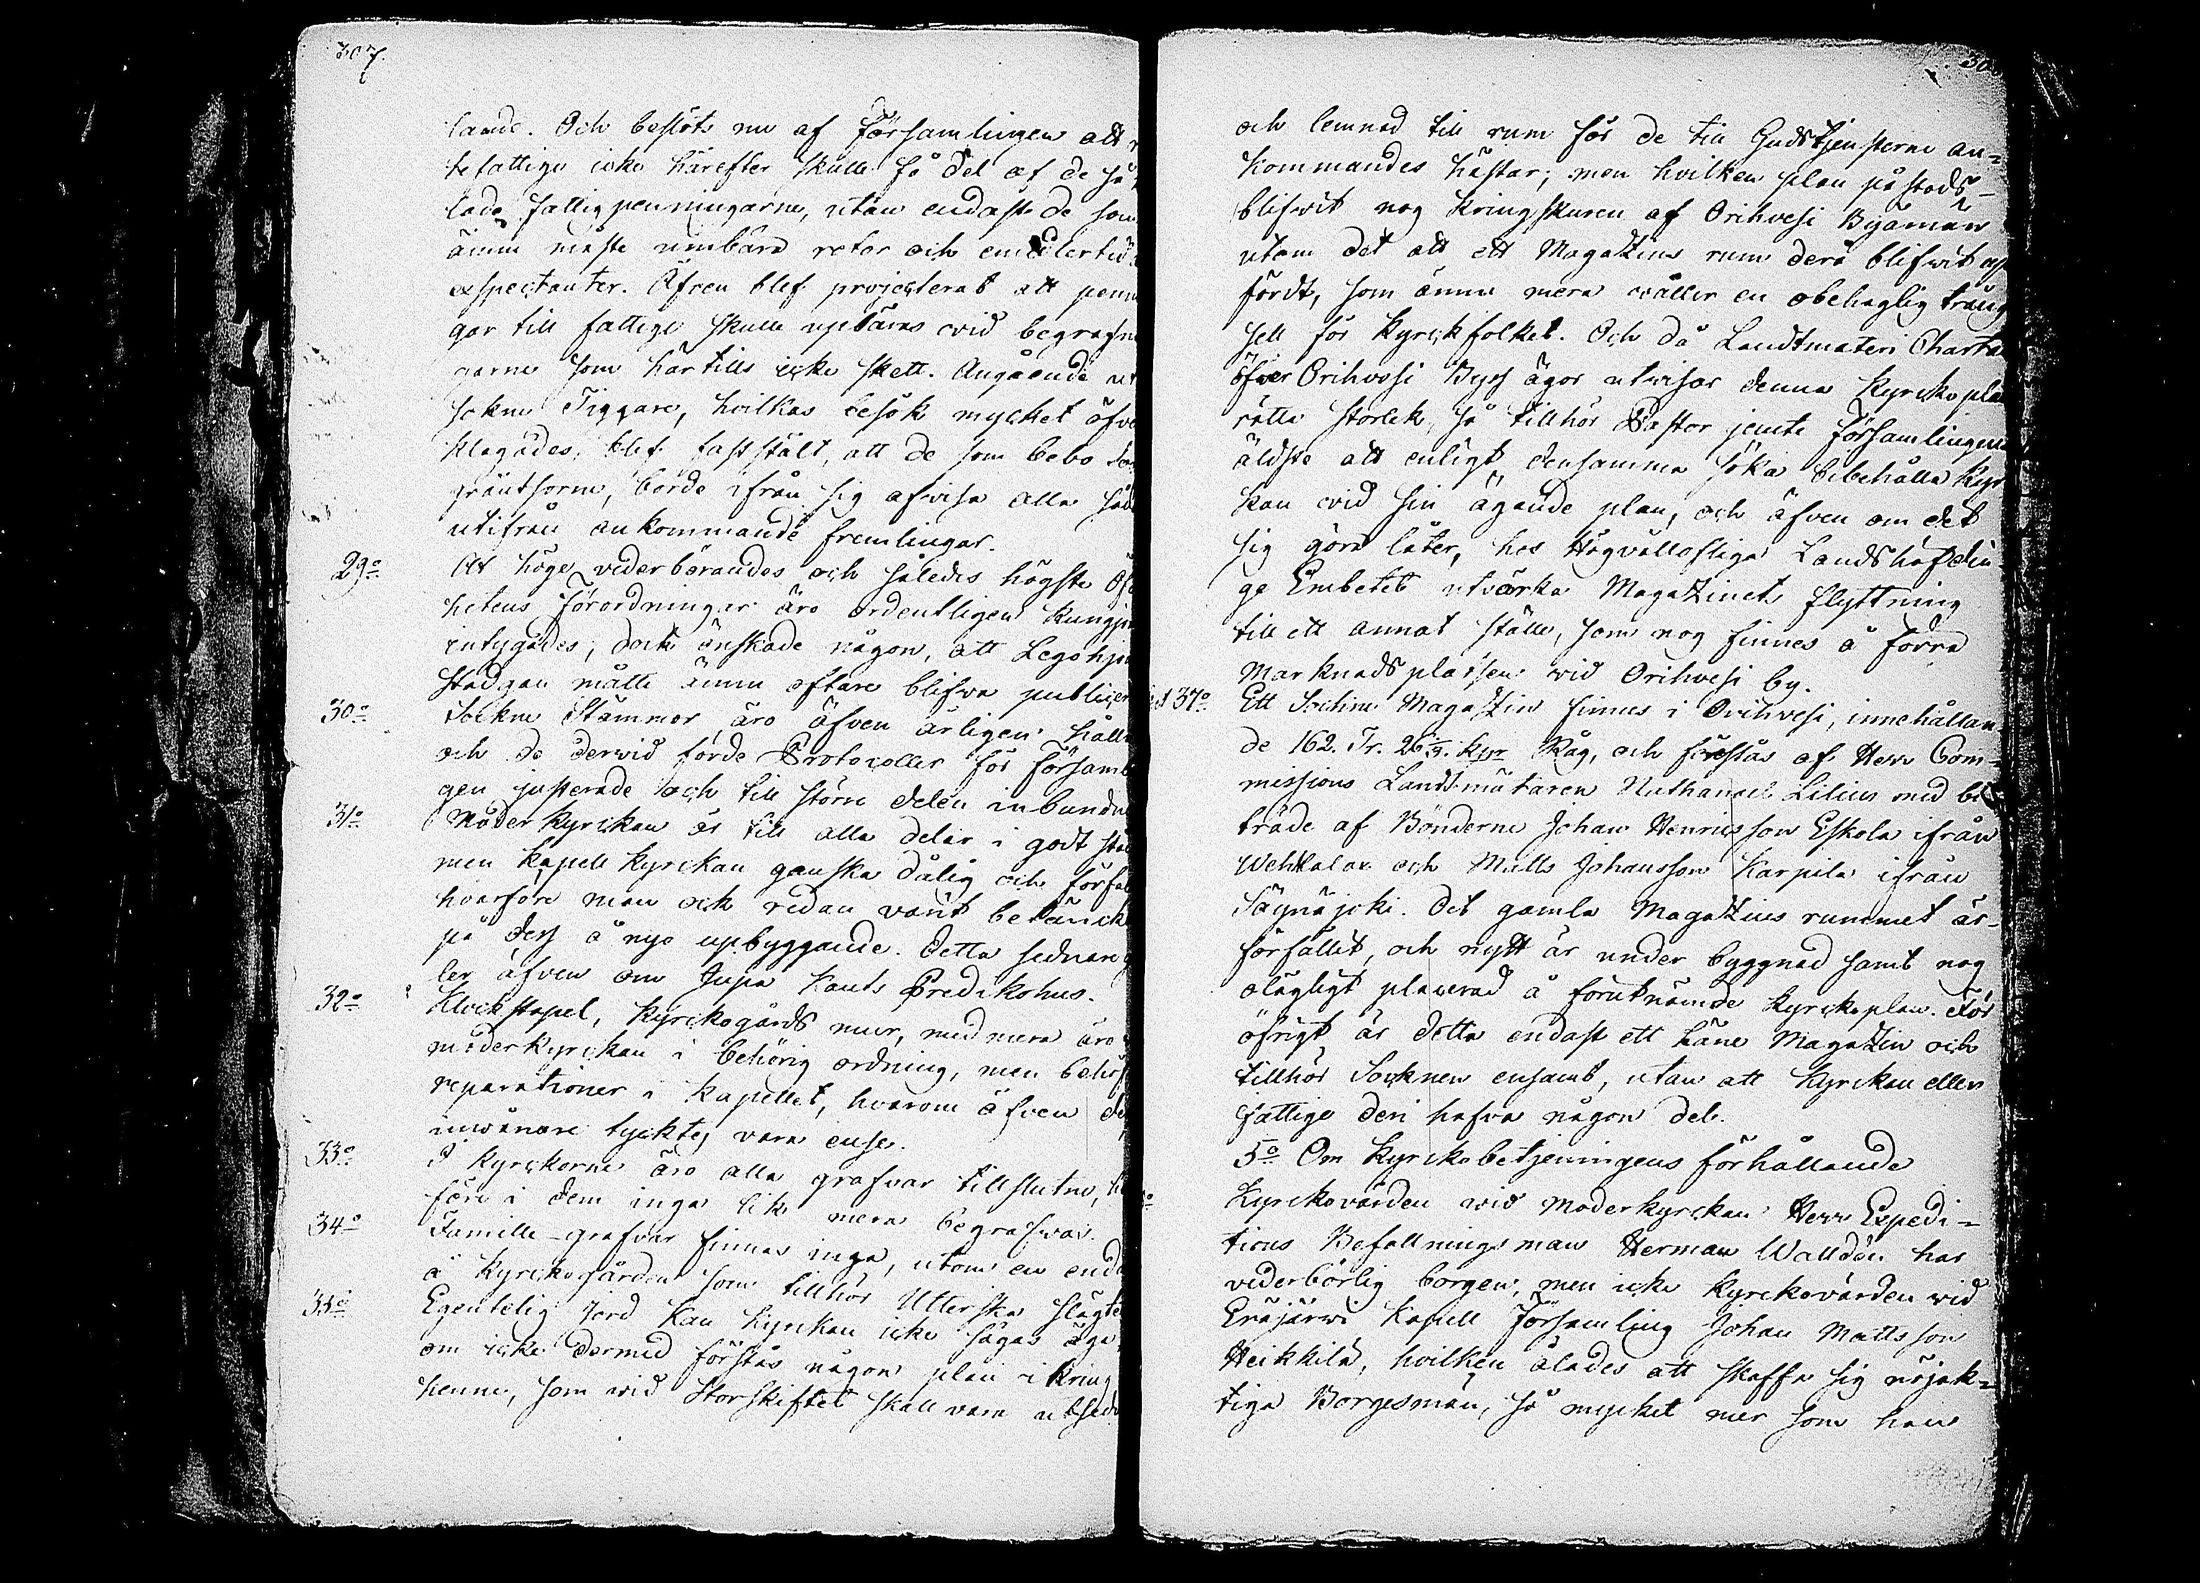 307.
lande. Och beslöts nu af Församlingen att
tefattige icke härefter skulle få del af de så
lade fattigpenningarne, utan endast de som
ännu måste umbära rotor och emedlertid
expectanter. Äfven blef projecterat att penni
gar till fattige skulle uptäras wid begrafni
garne som härtills icke skett. Angående ut
sokne Tiggare, hvilkas besök mycket öfve
klagades, blef fastställt, att de som bebo Soc
gräntsorne, borde ifrån sig afvisa alla såda
utifrån ankommande fremlingar.
29o At höge vederbörandes och således högste Öfv
hetens förordningar äro ordentligen kungjor
intygades; dock önskade någon, att Legohjo
Stadgan måtte ännu oftare blifva publicer
30o Sockne Stämmor äro äfven årligen håll
och de derwid förde Protocoller för Församl
gen justerade och till större delen inbundn
31o Moder kyrckan är till alla delar i godt stå
men kapell kyrckan ganska dålig och förfal
hvarföre man ock redan varit betänckt
på dess å nyo upbyggande. Detta sednare
ler äfven om Jupa kants Predikohus.
32o Klockstapel, kyrckogårds mur, med mera äro
moderkyrckan i behörig ordning, men behöf
reparationer i kapellet, hvarom äfven de
inwånare tyckte vara ense.
33o I kyrckorne äro alla grafvar tillslutne, h
före i dem inga lik mera begrafvas.
34o Famille-grafvar finnas inga, utom en enda
å kyrckogården som tillhör Utterska slägte
35o Egentelig jord kan kyrckan icke sägas äga
om icke dermed förstås någon plan ikring
henne, som wid Storskiftet skall vara utsedd
30
och lemnad till rum för de till Gudstjensterne an=
kommandes hästar; men hvilken plan på stads
blifwit nog kringskuren af Orihvesi Byamän
utom det att ett Magatzins rum derå blifwit up
fördt, som ännu mera wåller en obehaglig träng
sell för kyrckfolket. Och då Landtmäteri Charta
öfver Orihvesi Bys ägor utvisar denna kyrcko plan
rätta storlek, så tillhör Pastor jemte Församlingens
äldste att enligt densamma söka bibehålla kyr
kan wid sin ägande plan, och äfven om det
sig göra låter, hos Högvällofliga Landshöfdin
ge Embetet utvärka Magatzinets flyttning
till ett annat ställe, som nog finnes å förra
Marknadsplatsen wid Orihvesi by.
37o Ett Sockne Magatzin finnes i Orihvesi, innehållan
de 162. Tr. 26 kpr Råg, och förestås af Herr Com=
missions Landtmätaren Nathanael Lilius med bi
träde af Bönderne Johan Henricsson Eskola ifrån
Wehkalax och Matts Johansson Karpila ifrån
Säynäjoki. Det gamla Magatzins rummet är
förfallit, och nytt är under byggnad samt nog
olägligt placerad å förutnämde kyrckoplan. För
öfrigt är detta endast ett Låne Magatzin och
tillhör Socknen ensamt, utan att kyrckan eller
fattige deri hafva någon del.
5o Om Kyrckobetjeningens förhållande
Kyrckovärden wid Moderkyrckan Herr Expedi=
tions Befallningsman Herman Walldén har
vederbörlig borgen; men icke kyrckovärden wid
Eräjärwi kapell Församling Johan Mattsson
Heikkilä, hvilken ålades att skaffa sig nöjak=
tiga Borgesmän, så mycket mer som han